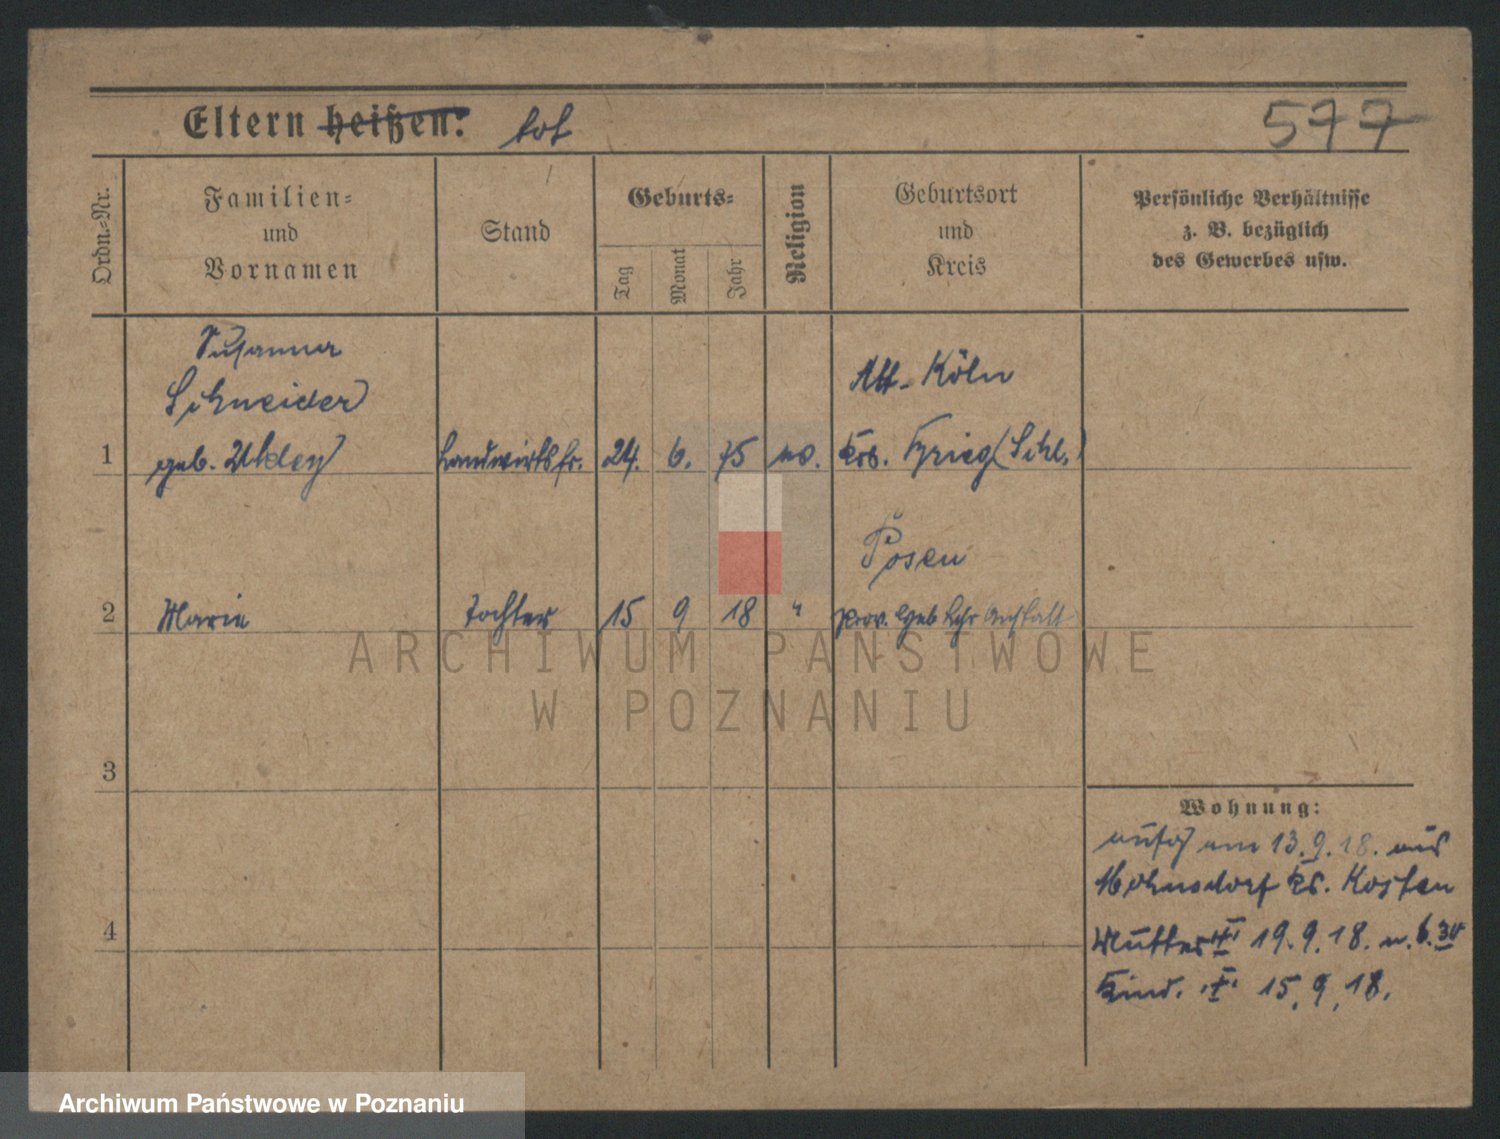 Eltern heißen: tot
577
Ordn.-Nr.
Familien-
und
Vornamen
Stand
Geburts-
Tag
Monat
Jahr
Religion
Geburtsort
und
Kreis
Persönliche Verhältnisse
z. B. bezüglich
des Gewerbes usw.
Susanna
Schneider
1
geb.
Landwirtsfr.
24. 6. 75
Alt-Köln
Krs. Brieg (Schl.)
2
Marie
Tochter
15 9 18
"
Posen
Prov. Geb
3
Wohnung:
am 13.9.18. aus
Kr. Kosten
4
Mutter 19.9.18.
Kind. 15.9.18.
ARCHIWUM PAŃSTWOWE
W POZNANIU
Archiwum Państwowe w Poznaniu